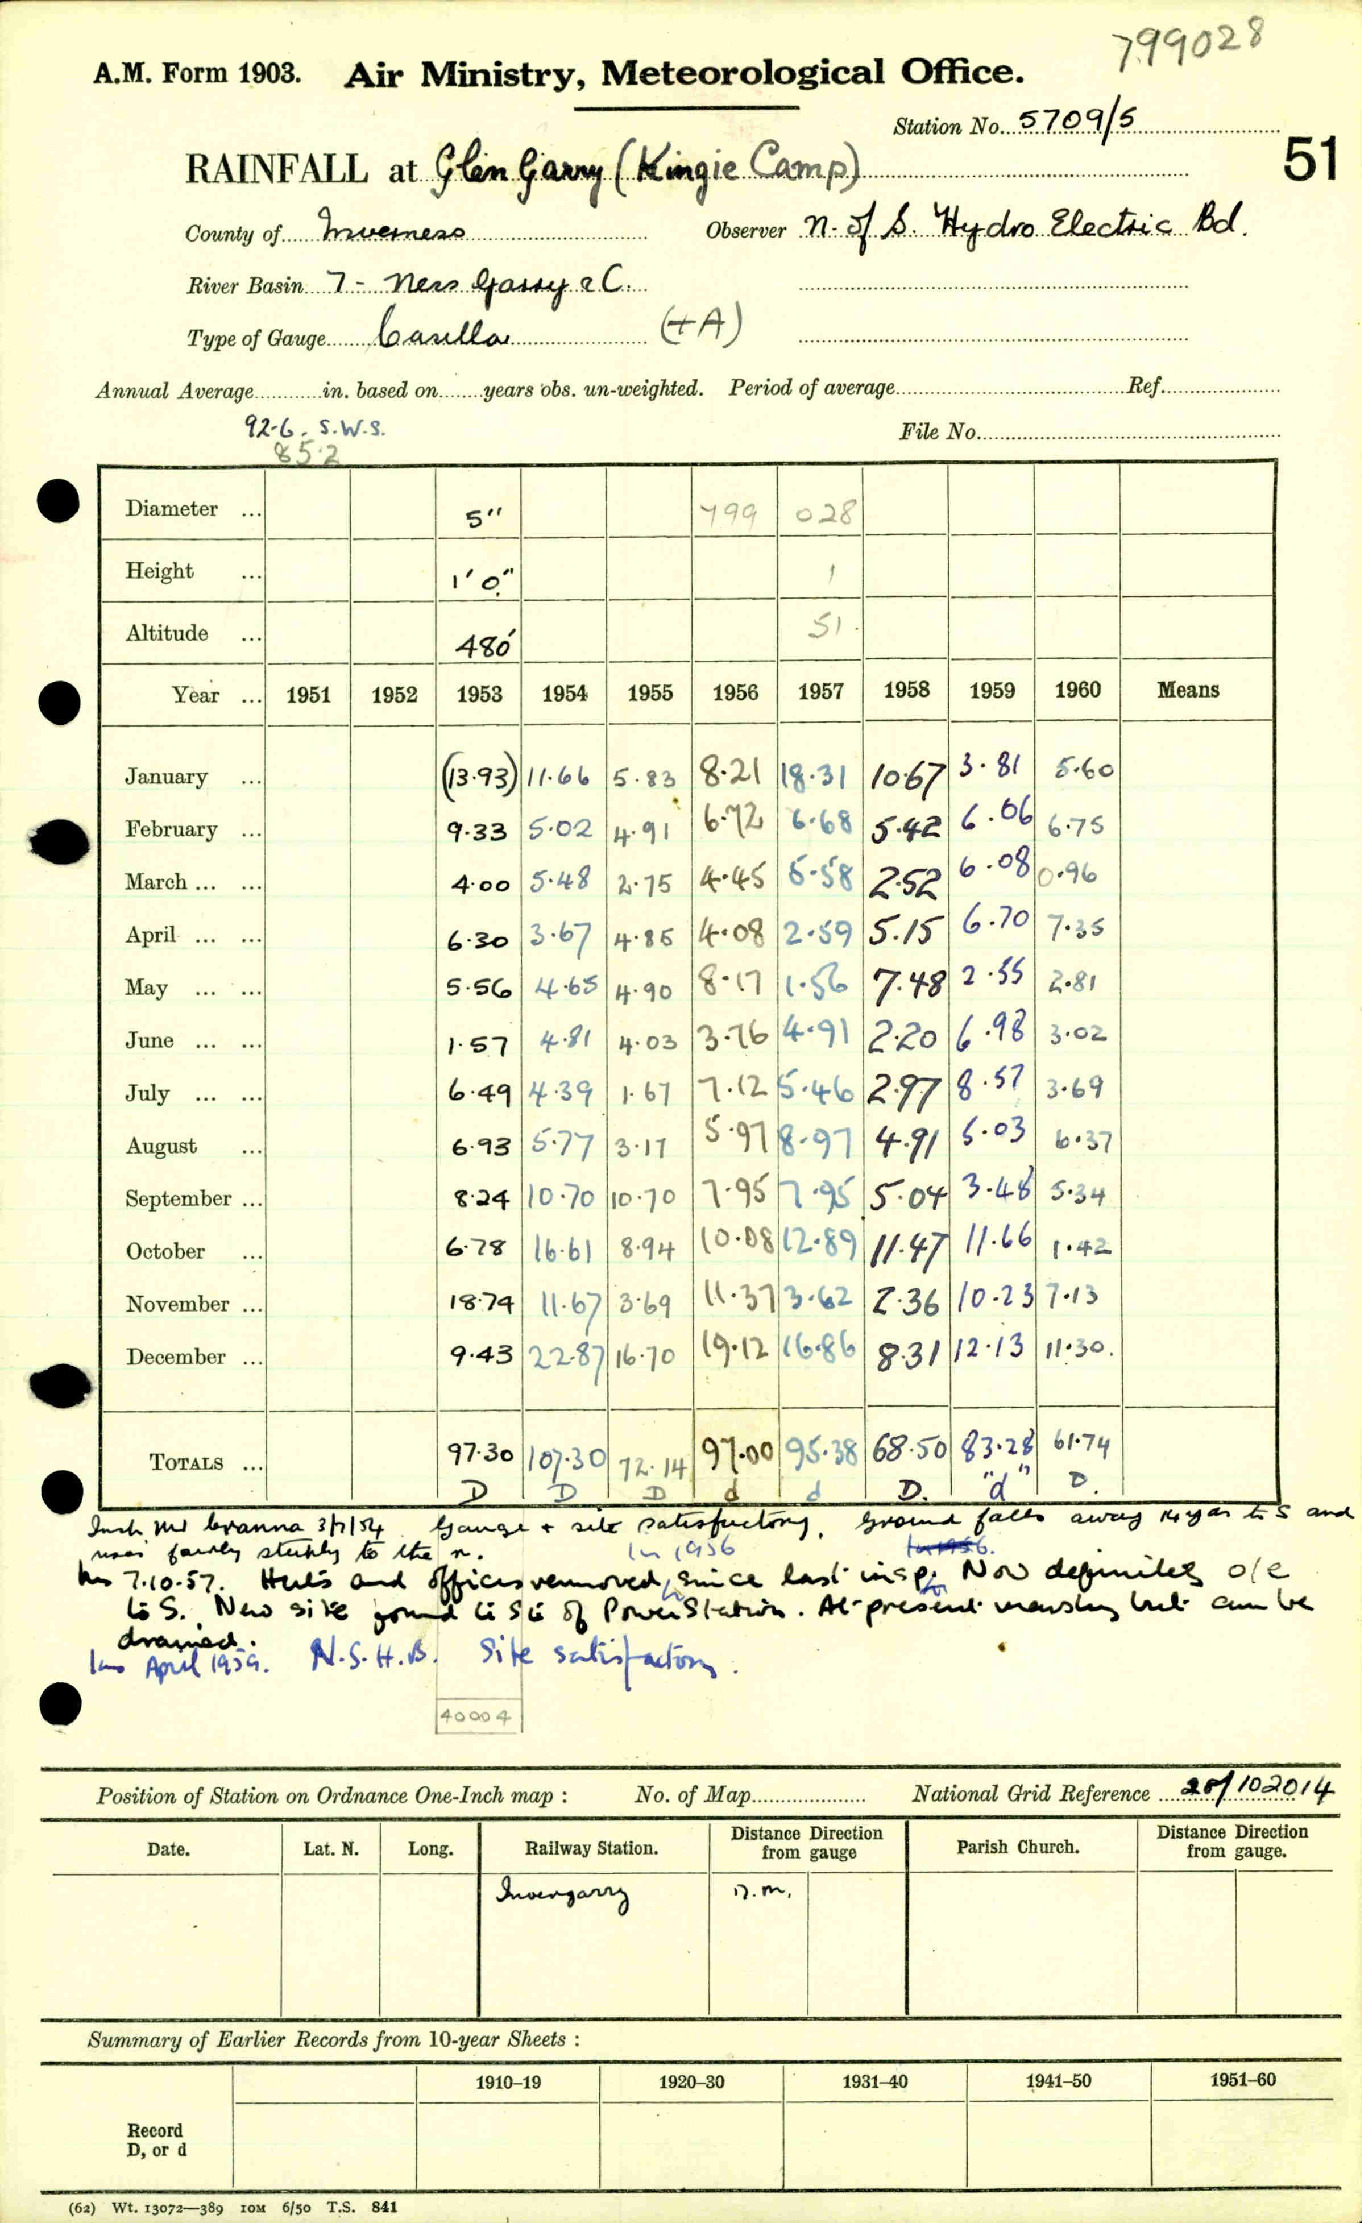 799028
A.M. Form 1903. Air Ministry, Meteorological Office.
Station No. 5709/5
51
RAINFALL at Glen Garry (Kingie Camp)
County of Inverness Observer N. of S. Hydro Electric Bd.
River Basin 7 - Ness Garry & C.
Type of Gauge Casella (+A)
Annual Average in. based on years obs. un-weighted. Period of average Ref.
92.6. S.W.S. File No.
852
Diameter ... 5" 799 028
Height ... 1' 0" 1
Altitude ... 480' 51.
Year ... 1951 1952 1953 1954 1955 1956 1957 1958 1959 1960 Means
January ... (13.93) 11.66 5.83 8.21 18.31 10.67 3.81 5.60
February ... 9.33 5.02 4.91 6.72 6.68 5.42 6.06 6.75
March ... ... 4.00 5.48 2.75 4.45 5.58 2.52 6.08 0.96
April ... ... 6.30 3.67 4.85 4.08 2.59 5.15 6.70 7.35
May ... ... 5.56 4.65 4.90 8.17 1.56 7.48 2.55 2.81
June ... ... 1.57 4.81 4.03 3.76 4.91 2.20 6.98 3.02
July ... ... 6.49 4.39 1.67 7.12 5.46 2.97 8.57 3.69
August ... 6.93 5.77 3.17 5.97 8.97 4.91 5.03 6.37
September ... 8.24 10.70 10.70 7.95 7.95 5.04 3.48 5.34
October ... 6.78 16.61 8.94 10.08 12.89 11.47 11.66 1.42
November ... 18.74 11.67 3.69 11.37 3.62 2.36 10.23 7.13
December ... 9.43 22.87 16.70 19.12 16.86 8.31 12.13 11.30.
TOTALS ... 97.30 107.30 72.14 97.00 95.38 68.50 83.28 61.74
D D D d d D. "d" D.
Insp. Mr Cranna 3/7/54. Gauge + site satisfactory. Ground falls away 14 yds to S and
rises fairly steeply to the n. In 1956
Ins 7.10.57. Huts and offices removed, since last insp. Now definitely o/e
to S. New site found to SE of Power Station. At present marshy but can be
drained.
Ins April 1959. N.S.H.B. Site satisfactory.
40004
Position of Station on Ordnance One-Inch map : No. of Map National Grid Reference 20/102014
Date. Lat. N. Long. Railway Station. Distance from gauge Direction Parish Church. Distance from gauge. Direction
Invergarry n.m.
Summary of Earlier Records from 10-year Sheets :
1910–19 1920–30 1931–40 1941–50 1951–60
Record
D, or d
(62) Wt. 13072—389 10M 6/50 T.S. 841